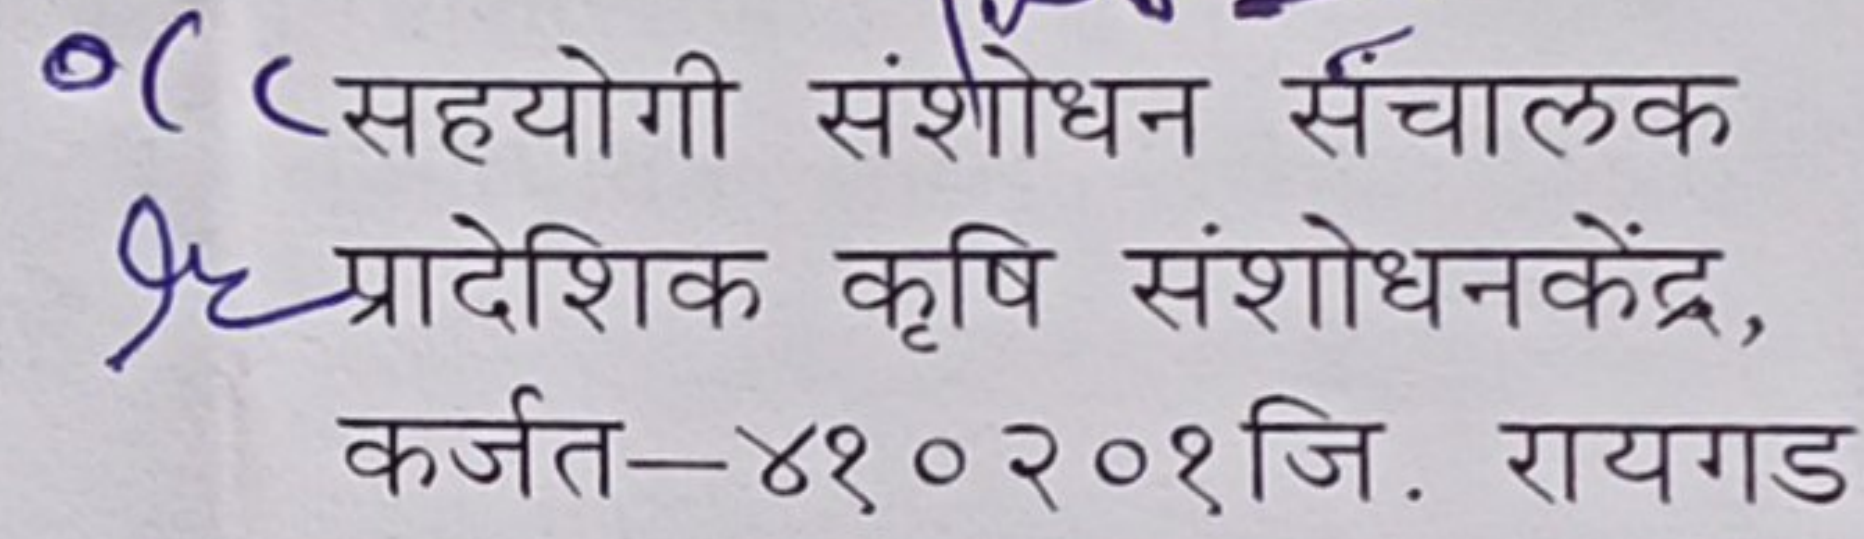 सहयोगी संशोधन संचालक
प्रादेशिक कृषि संशोधनकेंद्र,
कर्जत—४१०२०१जि. रायगड